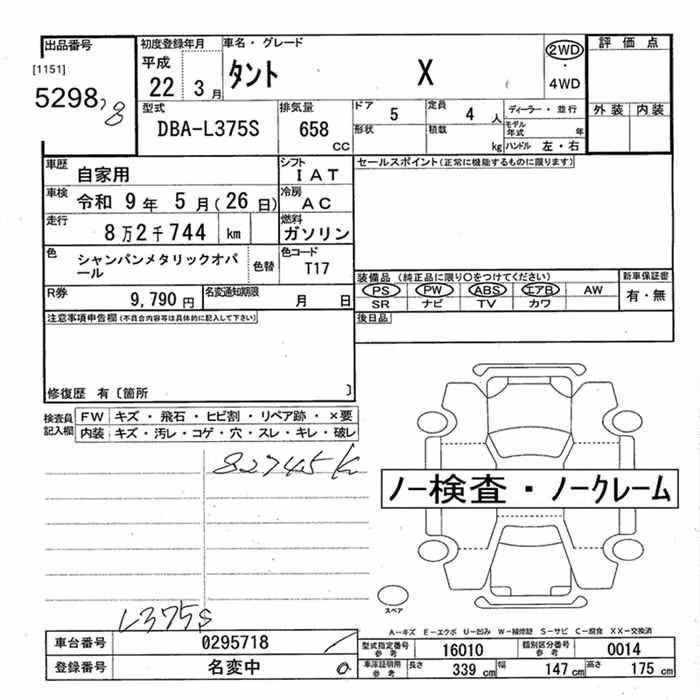 出品番号
[1151]
5298 8
初度登録年月
平成
22 3月
車名・グレード
タント X
2WD
・
4WD
評価点
外装 内装
型式
DBA-L375S
排気量
658
CC
ドア 5
定員 4 人
形状
積載 kg
ディーラー・並行
モデル年式 年
ハンドル 左・右
車歴 自家用
シフト IAT
車検 令和 9年 5月(26日)
冷房 AC
走行 8万2千744 km
燃料 ガソリン
色 シャンパンメタリックオパール
色替
色コード T17
R券 9,790円
名変通知期限 月 日
セールスポイント(正常に機能するものに限ります)
装備品 (純正品に限り〇をつけてください)
新車保証書
PS PW ABS エアB AW
SR ナビ TV カワ
有・無
後日品
注意事項申告欄(不具合内容等は具体的に記入して下さい)
修復歴 有〔箇所 〕
検査員記入欄
FW キズ・飛石・ヒビ割・リペア跡・×要
内装 キズ・汚レ・コゲ・穴・スレ・キレ・破レ
82745K
ノー検査・ノークレーム
スペア
L375S
A-キズ E-エクボ U-凹み W-補修跡 S-サビ C-腐食 XX-交換済
車台番号 0295718
登録番号 名変中
型式指定番号参考 16010
類別区分番号参考 0014
車庫証明用参考 長さ 339 cm 幅 147 cm 高さ 175 cm